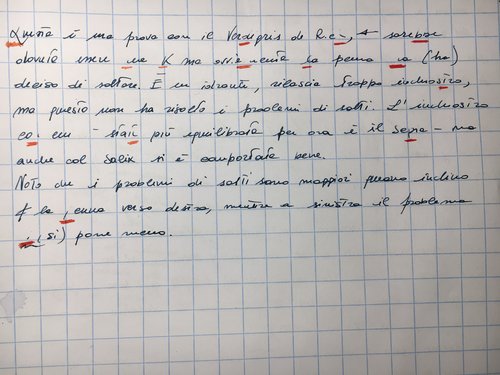 Questa è una prova con il Verdegris de R.e., sarebbe
dovuta essere una K ma ovviamente la penna va (ha)
deciso di saltare. È un idrante, rilascia troppo inchiostro,
ma questo non ha risolto i problemi di salti. L'inchiostro
co cui stait più equilibrata per ora è il sepia - ma
anche col Salix si è comportata bene.
Noto che i problemi di salti sono maggiori quando inclino
la enna verso destra, mentre a sinistra il problema
(si) pone meno.